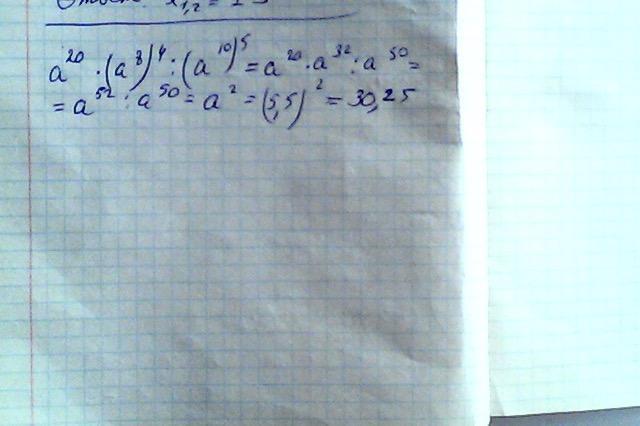 Ответ: x₁,₂ = ± 5
a²⁰ · (a⁸)⁴ : (a¹⁰)⁵ = a²⁰ · a³² : a⁵⁰ =
= a⁵² : a⁵⁰ = a² = (5,5)² = 30,25